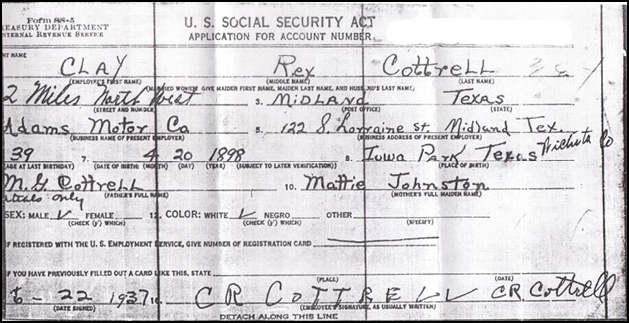 Form SS-5
TREASURY DEPARTMENT
INTERNAL REVENUE SERVICE
U. S. SOCIAL SECURITY ACT
APPLICATION FOR ACCOUNT NUMBER
NT NAME
CLAY Rex Cottrell
(EMPLOYEE'S FIRST NAME) (MIDDLE NAME) (LAST NAME)
(MARRIED WOMEN: GIVE MAIDEN FIRST NAME, MAIDEN LAST NAME, AND HUSBAND'S LAST NAME)
2 Miles North West 3. MIDLAND Texas
(STREET AND NUMBER) (POST OFFICE) (STATE)
Adams Motor Co 5. 122 S. Lorraine St. Midland Tex.
(BUSINESS NAME OF PRESENT EMPLOYER) (BUSINESS ADDRESS OF PRESENT EMPLOYER)
39 7. 4 20 1898 8. Iowa Park Texas Wichita Co
(AGE AT LAST BIRTHDAY) (DATE OF BIRTH: (MONTH) (DAY) (YEAR) (SUBJECT TO LATER VERIFICATION) (PLACE OF BIRTH)
M. G. Cottrell 10. Mattie Johnston
itials only (FATHER'S FULL NAME) (MOTHER'S FULL MAIDEN NAME)
SEX: MALE ✓ FEMALE 12. COLOR: WHITE ✓ NEGRO OTHER
(CHECK (✓) WHICH) (CHECK (✓) WHICH) (SPECIFY)
IF REGISTERED WITH THE U. S. EMPLOYMENT SERVICE, GIVE NUMBER OF REGISTRATION CARD
IF YOU HAVE PREVIOUSLY FILLED OUT A CARD LIKE THIS, STATE
(PLACE) (DATE)
6 - 22 1937 C R COTTRELL C.R. Cottrell
(DATE SIGNED) (EMPLOYEE'S SIGNATURE, AS USUALLY WRITTEN)
DETACH ALONG THIS LINE